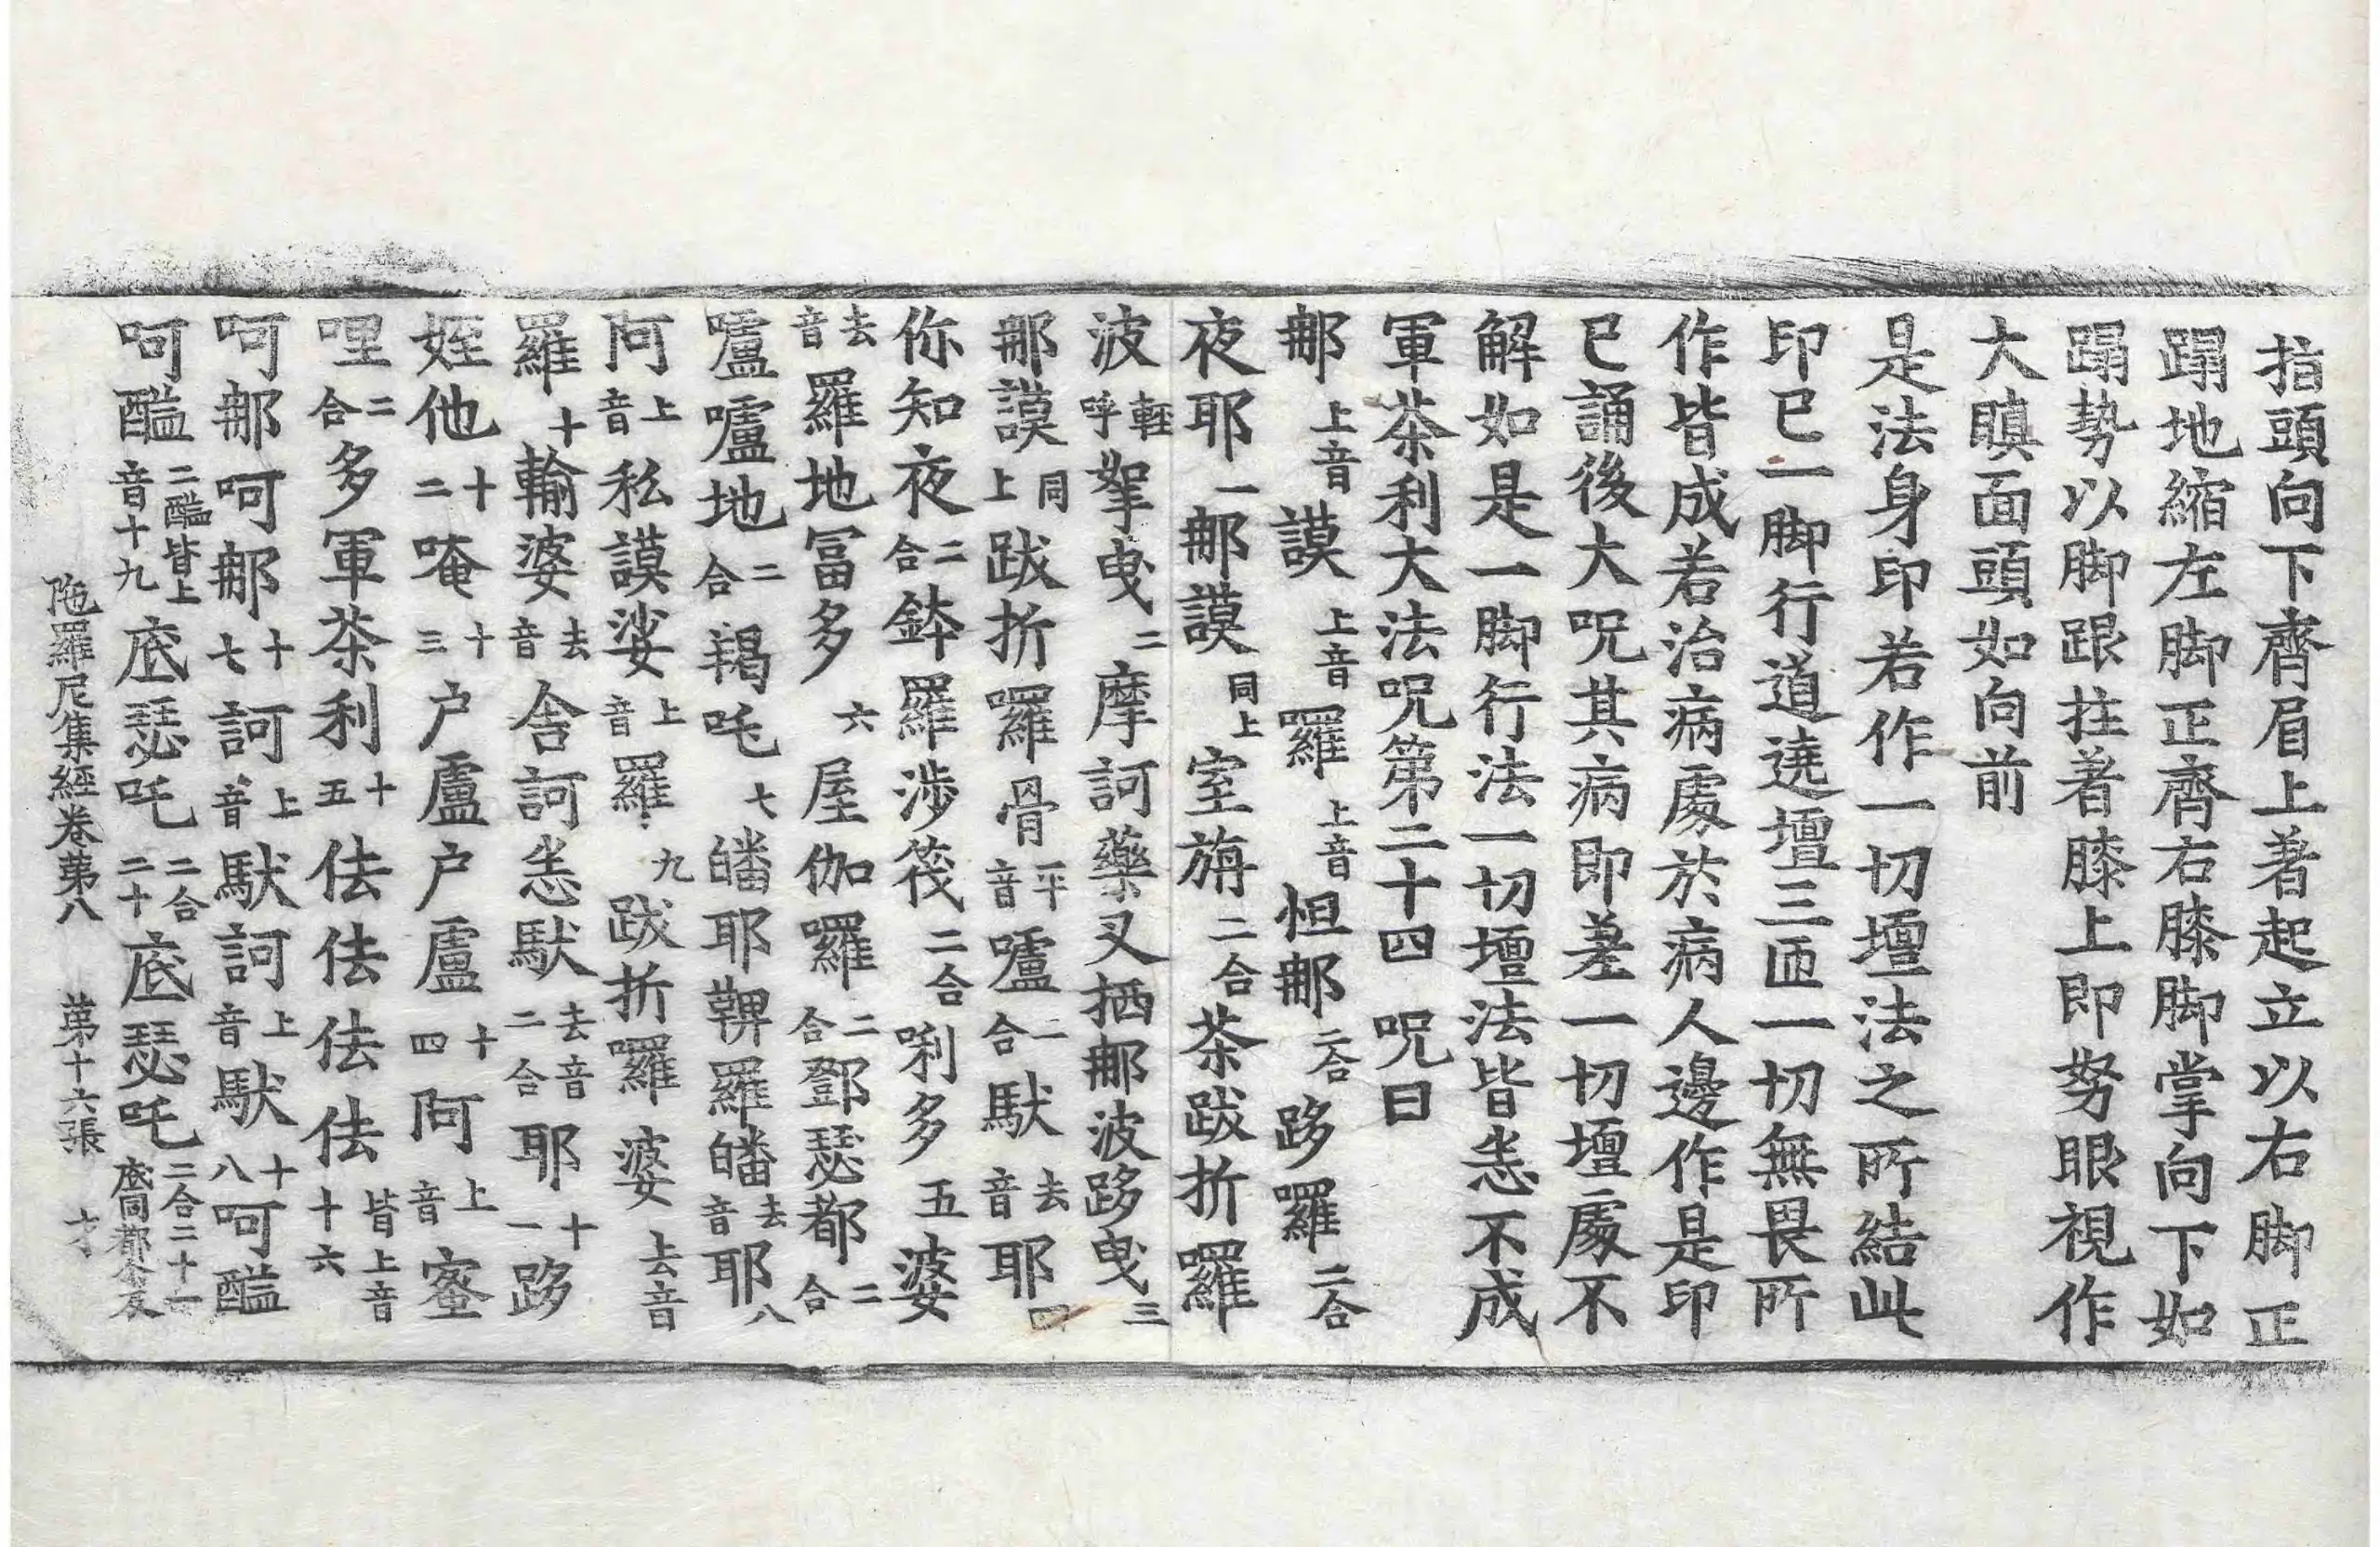 指頭向下齊眉上著起立以右脚正
蹋地縮左脚正齊右膝脚掌向下如
蹋勢以脚跟拄著膝上即努眼視作
大瞋面頭如向前
是法身印若作一切壇法之所結此
印已一脚行道遶壇三匝一切無畏所
作皆成若治病處於病人邊作是印
已誦後大呪其病即差一切壇處不
解如是一脚行法一切壇法皆悉不成
軍荼利大法呪第二十四 呪曰
那上音謨上音羅上音怛那二合跢羅二合
夜耶一那謨同上室旃二合荼跋折囉
波輕呼拏曳二摩訶藥叉栖那波跢曳三
那謨同上跋折囉骨平音嚧二合馱去音耶四
你知夜二合鉢羅涉筏二合唎多五婆
去音羅地冨多六屋伽囉二合鄧瑟都二合
嚧嚧地二合羯吒七皤耶鞞羅皤去音耶八
阿上音私謨娑上音羅九跋折囉婆去音
羅十輸婆去音舍訶恙馱去音二合耶十一跢
姪他十二唵十三户盧户盧十四阿上音蜜
哩二合多軍荼利十五佉佉佉佉皆上音十六
呵那呵那十七訶上音馱訶上音馱十八呵醯
呵醯二醯皆上音十九底瑟吒二合二十底瑟吒二合二十一底同都
陁羅尼集經卷第八 第十六張 才